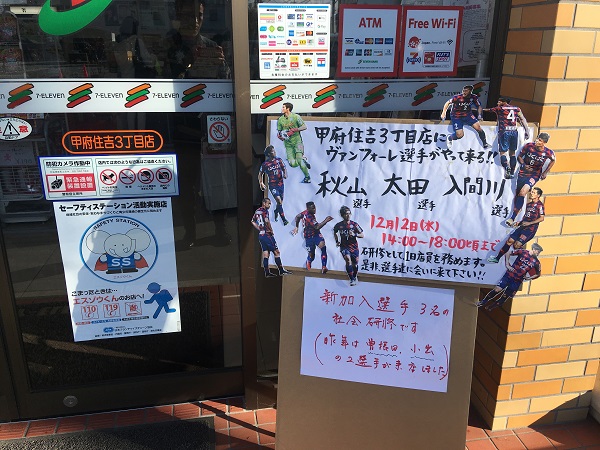 ATM
Free Wi-Fi
7-ELEVEN
7-ELEVEN
7-ELEVEN
7-ELEVEN
甲府住吉3丁目店
防犯カメラ作動中
緊急通報
装置設置
セーフティステーション活動実施店
SAFETY STATION
SS
こまったときは…
エスゾウくんのお店へ!
110
119
甲府住吉3丁目店に
ヴァンフォーレ選手がやって来る!!
秋山選手 太田選手 入間川選手
12月12日(水)
14:00~18:00頃まで
研修として1日店員を務めます。
是非、選手達に会いに来て下さい!!
新加入選手3名の
社会研修です
(昨年は曽根田、小出
の2選手が来ました)